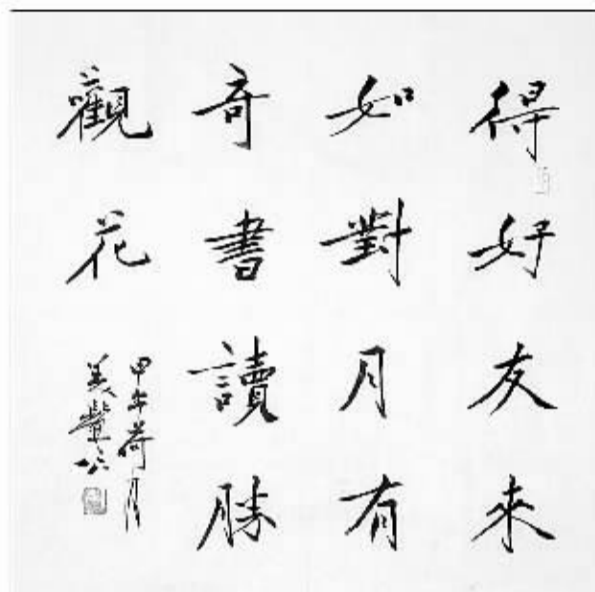 得好友來
如對月有
奇書讀勝
觀花
甲午荷月